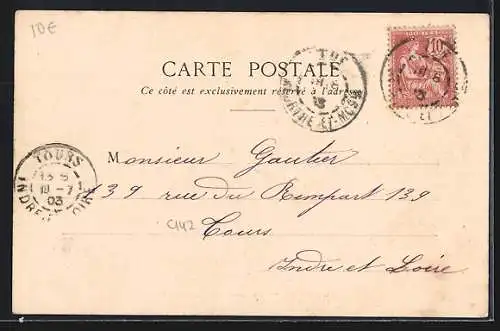 10€
CARTE POSTALE
Ce côté est exclusivement réservé à l'adresse
MEURTHE-ET-MOSELLE
10
TOURS
13 5
18 - 7
03
INDRE-ET-LOIRE
Monsieur Gautier
139 rue du Rempart 139
Tours
C142
Indre et Loire